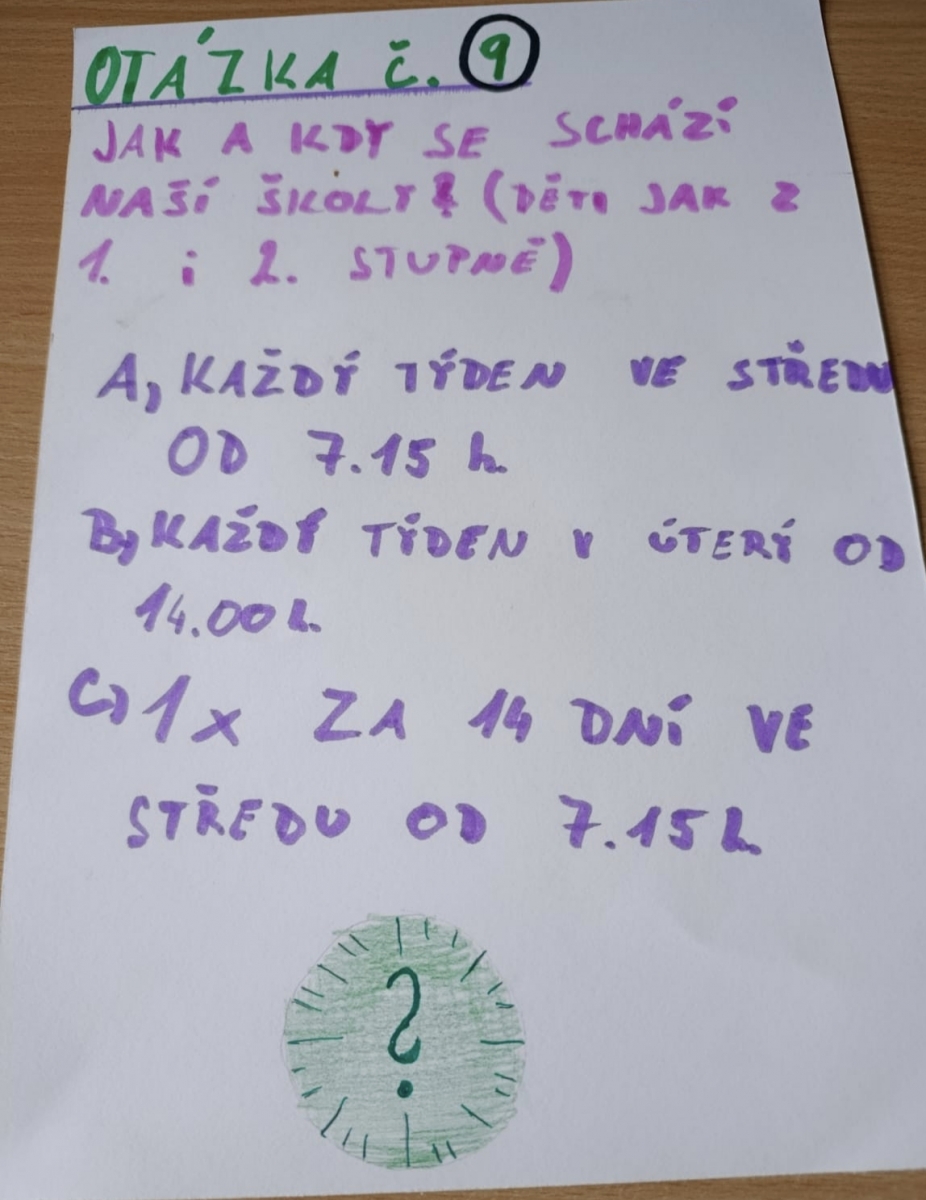 OTÁZKA Č. 9
JAK A KDY SE SCHÁZÍ
NAŠÍ ŠKOLY? (DĚTI JAK Z
1. i 2. STUPNĚ)
A, KAŽDÝ TÝDEN VE STŘEDU
OD 7.15 h.
B, KAŽDÝ TÝDEN V ÚTERÝ OD
14.00 h.
C, 1x ZA 14 DNÍ VE
STŘEDU OD 7.15 h.
?